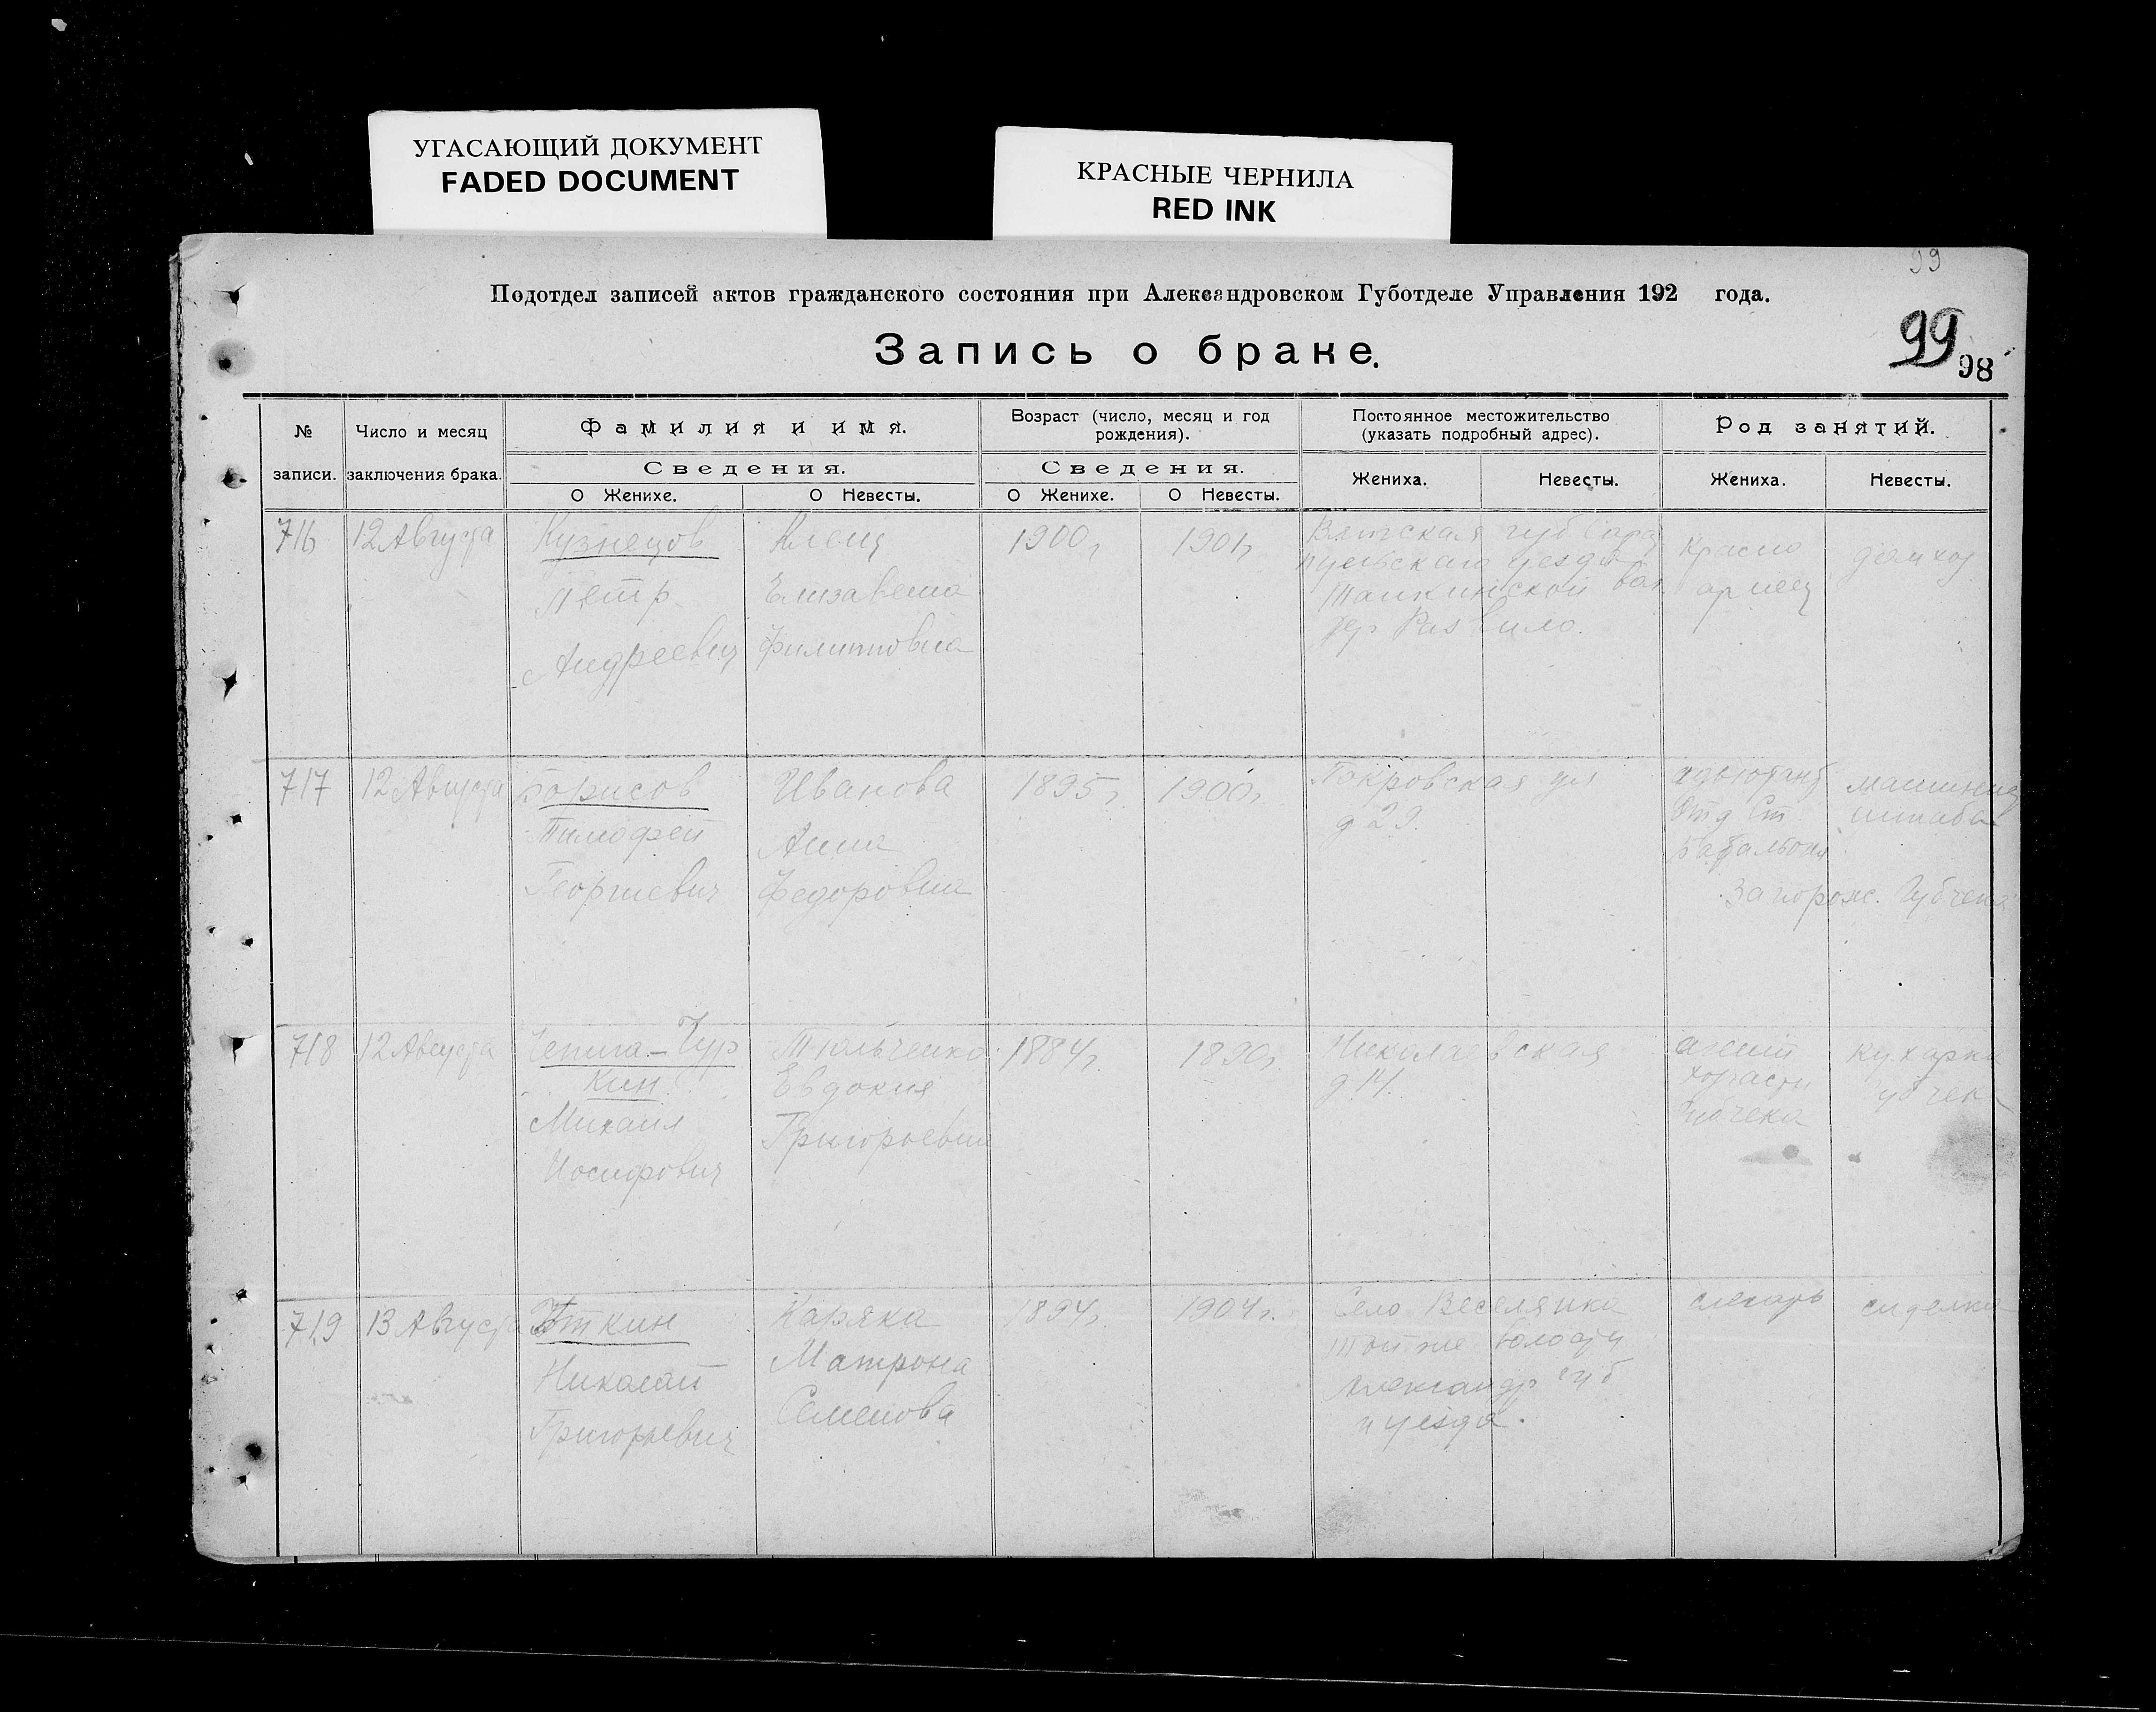 УГАСАЮЩИЙ ДОКУМЕНТ
FADED DOCUMENT
КРАСНЫЕ ЧЕРНИЛА
RED INK
99
Подотдел записей актов гражданского состояния при Александровском Губотделе Управления 192 года.
Запись о браке.
99 98
№ записи.
Число и месяц заключения брака.
Фамилия и имя.
Сведения.
О Женихе.
О Невесты.
Возраст (число, месяц и год рождения).
Сведения.
О Женихе.
О Невесты.
Постоянное местожительство (указать подробный адрес).
Жениха.
Невесты.
Род занятий.
Жениха.
Невесты.
716
12 Августа
Кузнецов
Петр
Андреевич
Елизавета
Филипповна
1900 г
1901 г
Вятская губ Сара
пульского уезда
вол
дер
Красно
армеец
домхоз
717
12 Августа
Борисов
Тимофей
Георгиевич
Иванова
Анна
Федоровна
1895 г.
1900 г
Покровская ул
д 29.
адъютант
Отд Ст
Батальона
штаба
Запорож. Губчека
718
12 Августа
Чепига-Чур
кин
Михаил
Иосифович
Тюльченко
Евдокия
Григорьевна
1884 г.
1890 г.
Николаевская
д 14.
агент
Губчека
кухарка
719
13 Августа
Уткин
Николай
Григорьевич
Каряка
Матрона
Семенова
1894 г.
1904 г.
Село Веселянка
Той же волости
Александр губ
и уезда.
слесарь
сиделка